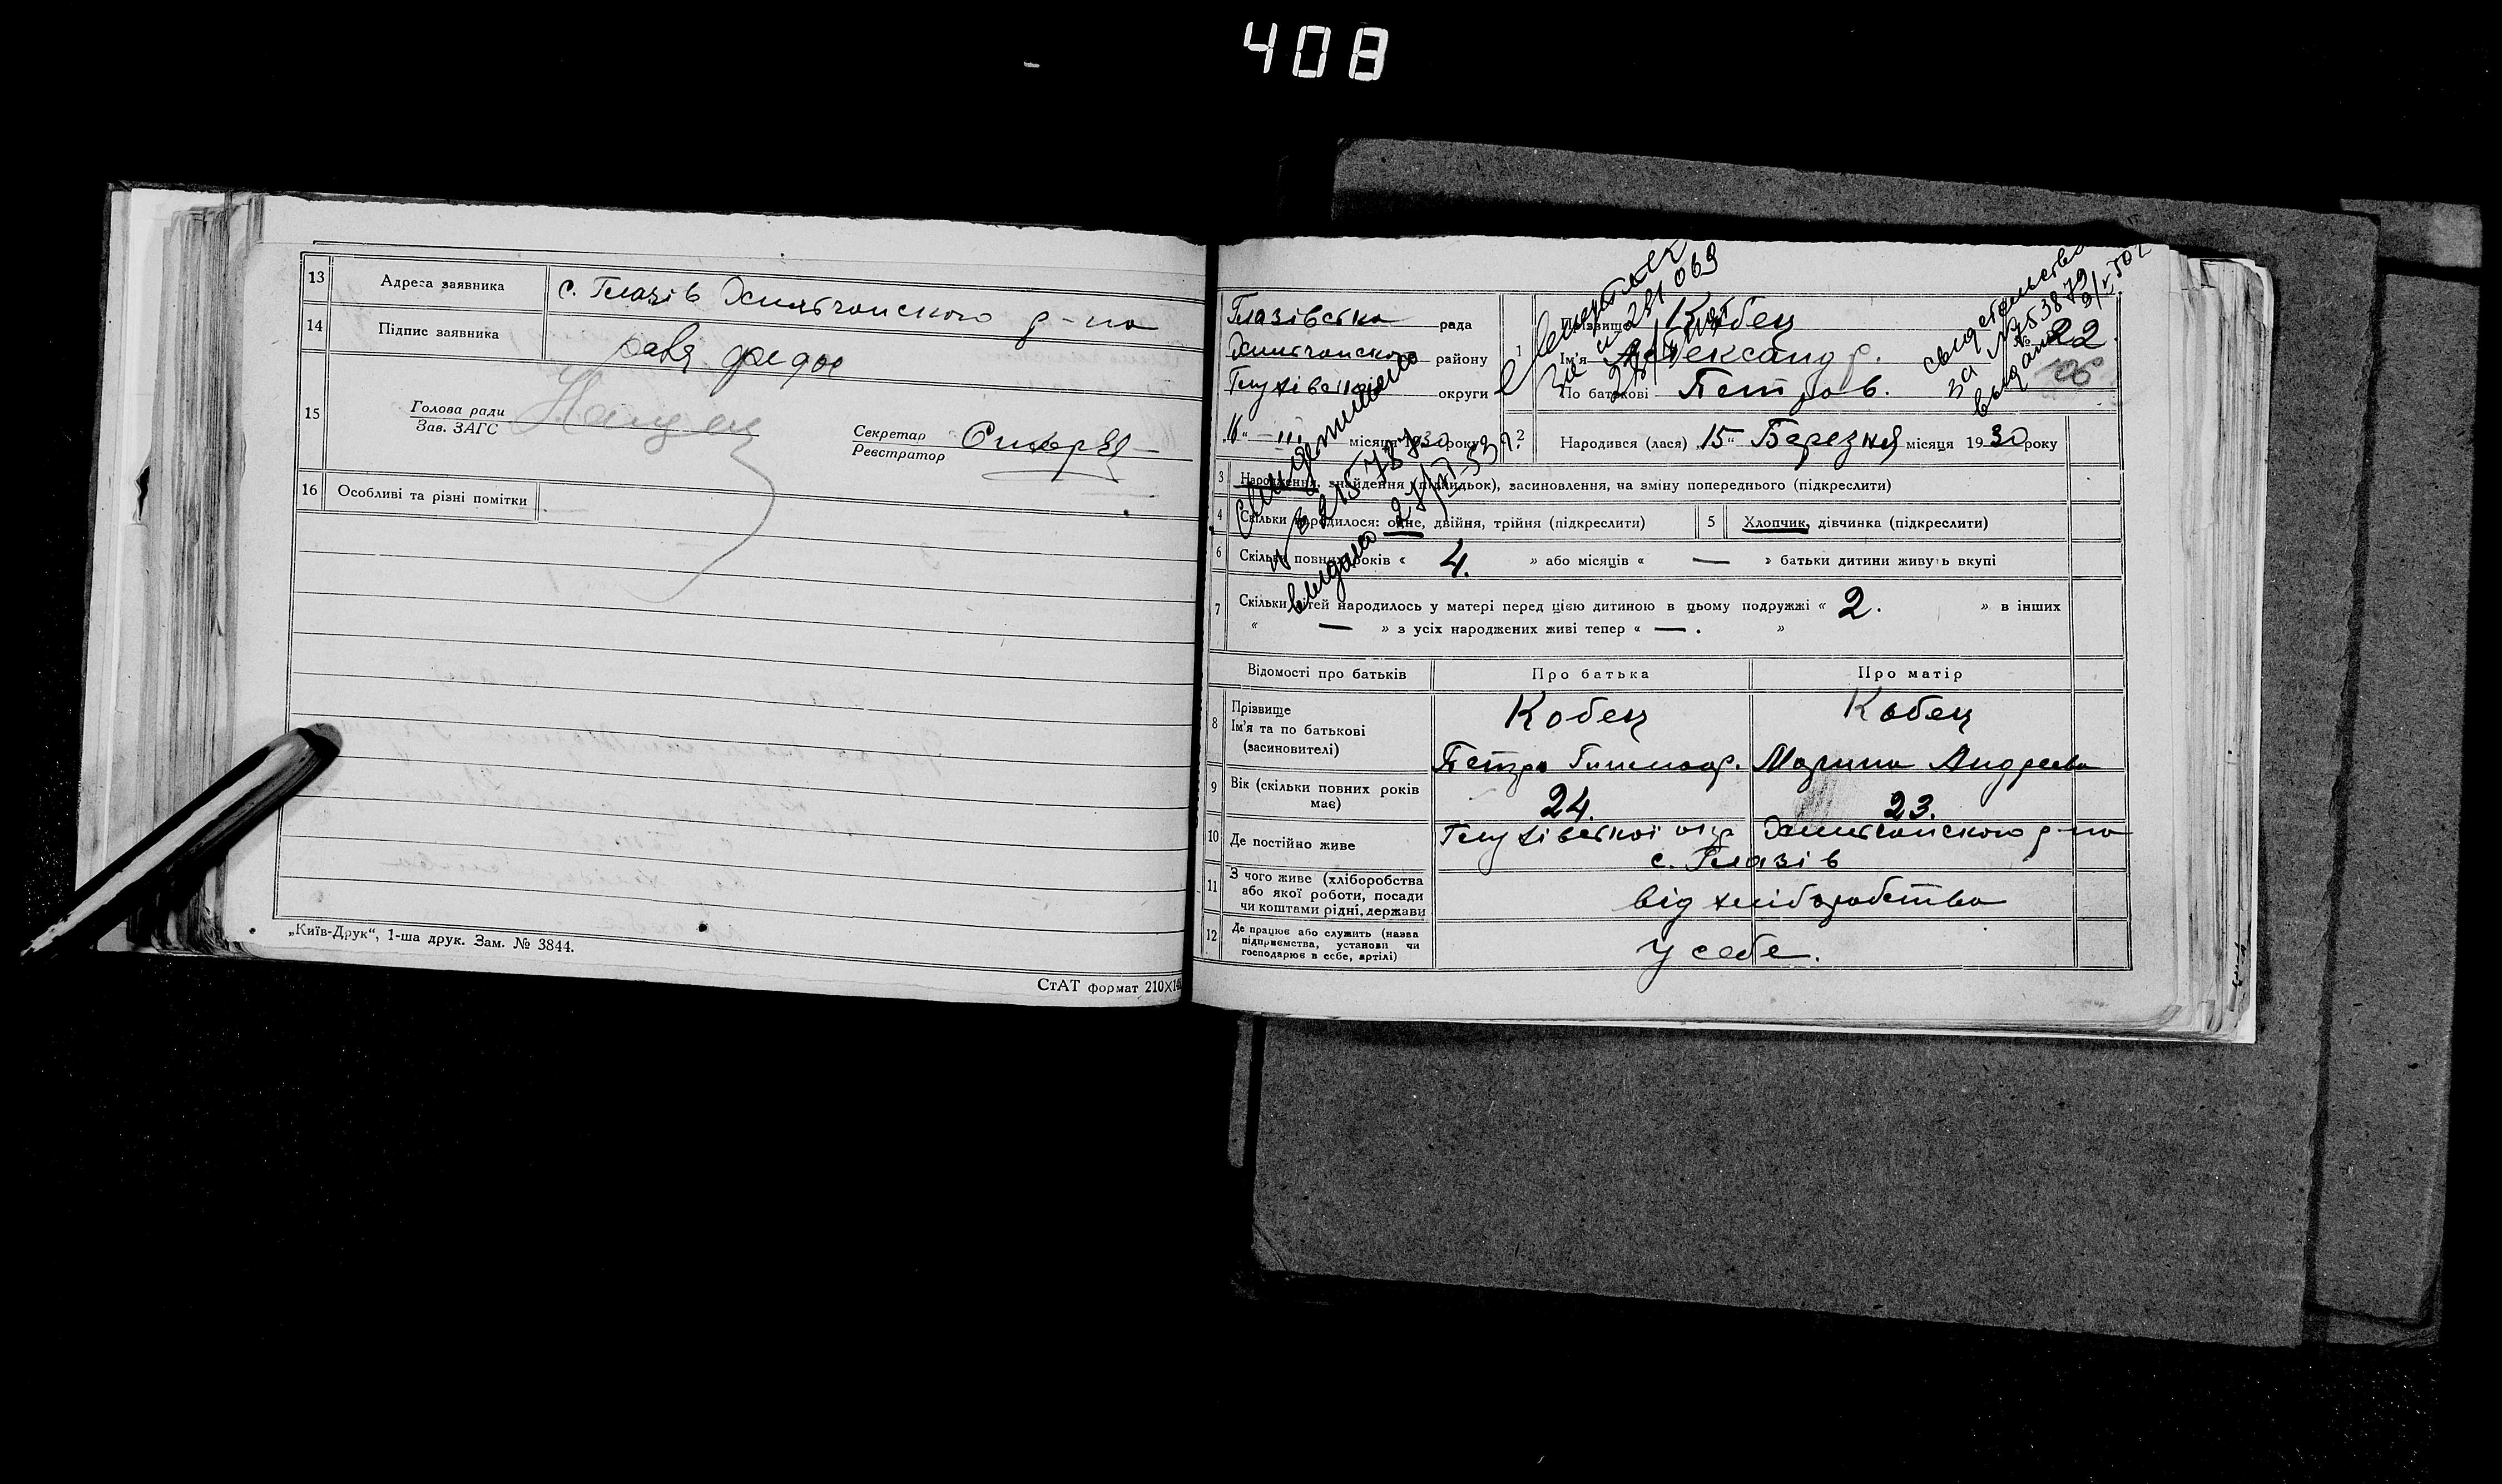 408
13 Адреса заявника с. Глазів Хильчанского р-на
14 Підпис заявника
15 Голова ради
Зав. ЗАГС
Секретар
Реєстратор
16 Особливі та різні помітки
„Київ-Друк“, 1-ша друк. Зам. № 3844.
СтАТ формат 210×14
Глазівська рада
Хильчанского району
Глухівської округи
„16“ III місяця 1930 року
свидетельство
№ 215787
выдано
291069
свидетельство
за №
выдано
№ 22.
106
1 Прізвище Кобец
Ім'я Александр.
По батькові Петров.
2 Народився (лася) „15“ Березня місяця 1930 року
3 Народження, знайдення (підкидьок), засиновлення, на зміну попереднього (підкреслити)
4 Скільки народилося: одне, двійня, трійня (підкреслити)
5 Хлопчик, дівчинка (підкреслити)
6 Скільки повних років « 4. » або місяців « — » батьки дитини живуть вкупі
7 Скільки дітей народилось у матері перед цією дитиною в цьому подружжі « 2. » в інших
« — » з усіх народжених живі тепер « —. »
Відомості про батьків Про батька Про матір
8 Прізвище Кобец Кобец
Ім'я та по батькові
(засиновителі) Петро Марина Андреева
9 Вік (скільки повних років
має) 24. 23.
10 Де постійно живе Глухівської окр Хильчанского р-на
с. Глазів
11 З чого живе (хліборобства
або якої роботи, посади
чи коштами рідні, держави від хліборобства
12 Де працює або служить (назва
підприємства, установи чи
господарює в себе, артілі) у себе.